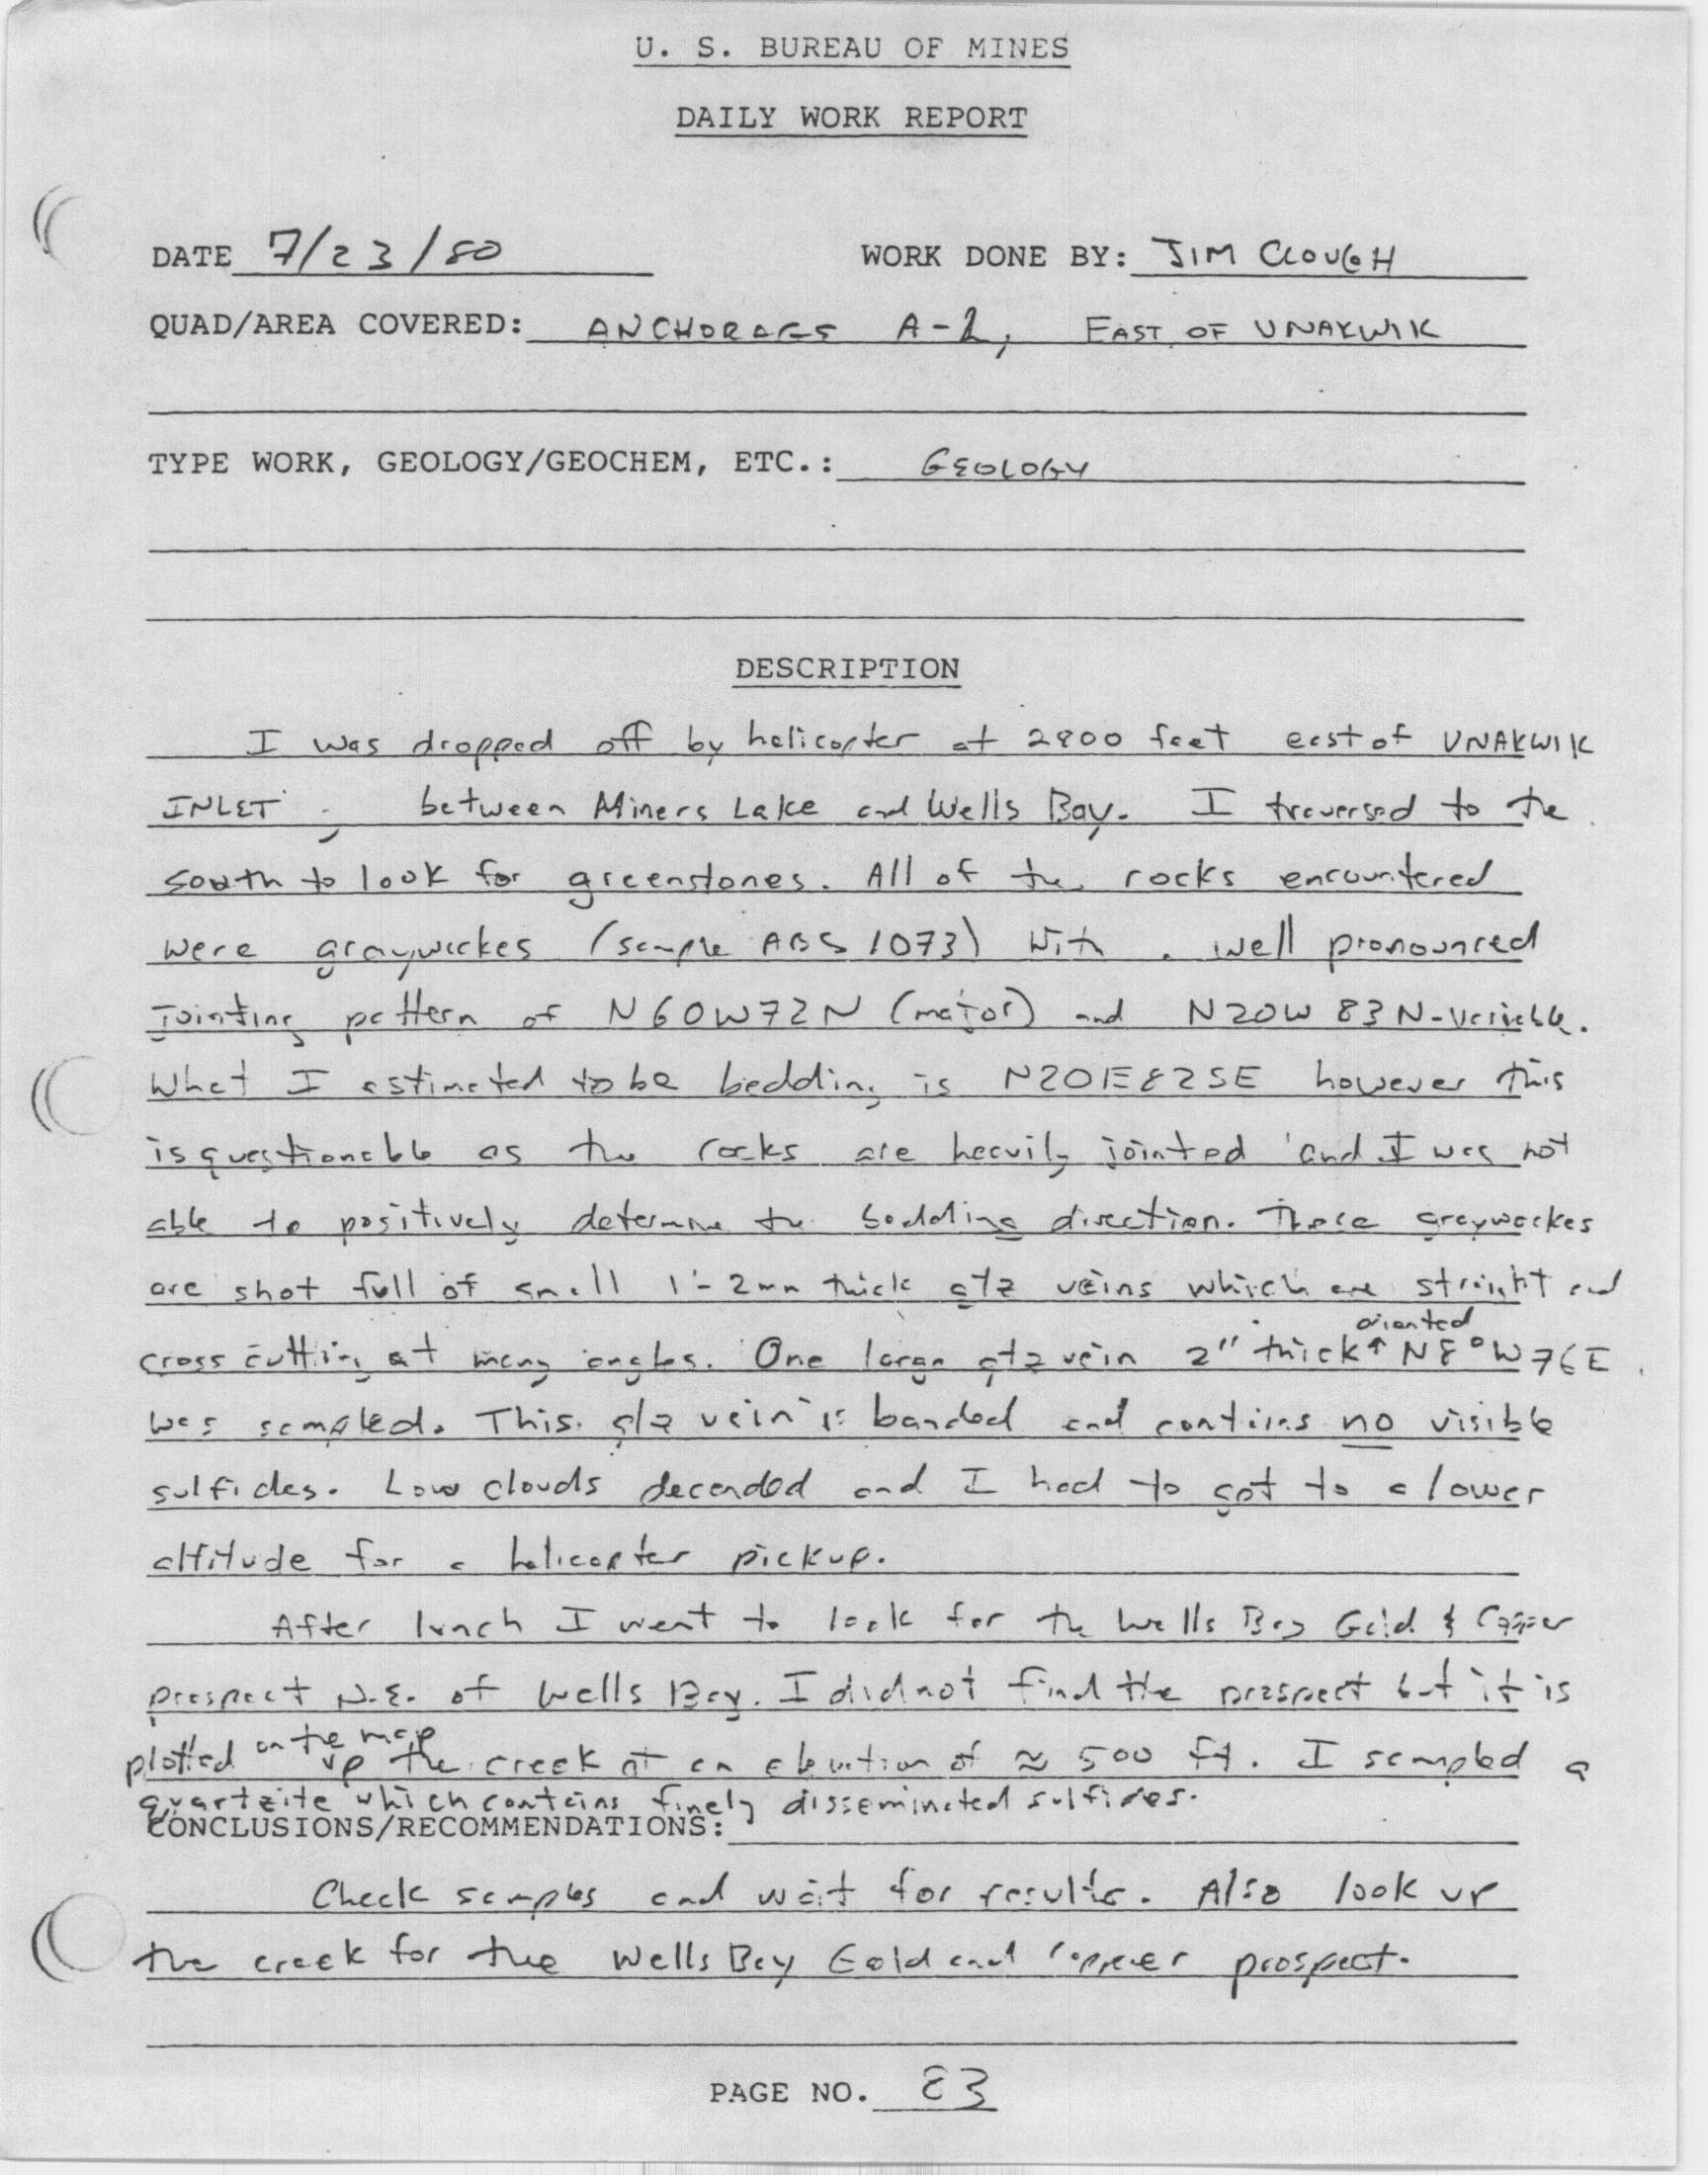 U. S. BUREAU OF MINES
DAILY WORK REPORT
DATE 7/23/80 WORK DONE BY: JIM CLOUGH
QUAD/AREA COVERED: ANCHORAGE A-2, EAST OF UNAKWIK
TYPE WORK, GEOLOGY/GEOCHEM, ETC.: GEOLOGY
DESCRIPTION
I was dropped off by helicopter at feet east of UNAKWIK
INLET, between Miners Lake and Wells Bay. I traversed to the
south to look for greenstones. All of the rocks encountered
were graywackes (sample ABS 1073) with well pronounced
jointing pattern of N60W72N (major) and N20W 83N-variable.
What I estimated to be bedding is N20E82SE however this
is questionable as the rocks are heavily jointed and I was not
able to positively determine the bedding direction. These graywackes
are shot full of small 1-2mm thick qtz veins which are straight and
cross cutting at many angles. One large qtz vein 2" thick ↑ oriented N80W76E
was sampled. This qtz vein is banded and contains no visible
sulfides. Low clouds decended and I had to get to a lower
altitude for a helicopter pickup.
After lunch I went to look for the Wells Bay Gold & Copper
prospect N.E. of Wells Bay. I did not find the prospect but it is
plotted on the map up the creek at an elevation of ≈ 500 ft. I sampled a
quartzite which contains finely disseminated sulfides.
CONCLUSIONS/RECOMMENDATIONS:
Check samples and wait for results. Also look up
the creek for the Wells Bay Gold and Copper prospect.
PAGE NO. 83